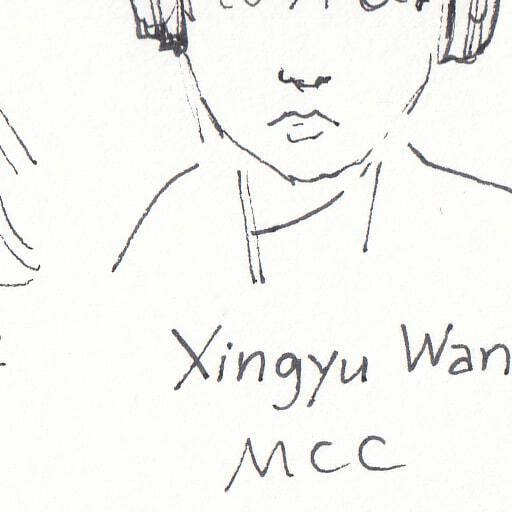 Xingyu Wan
MCC